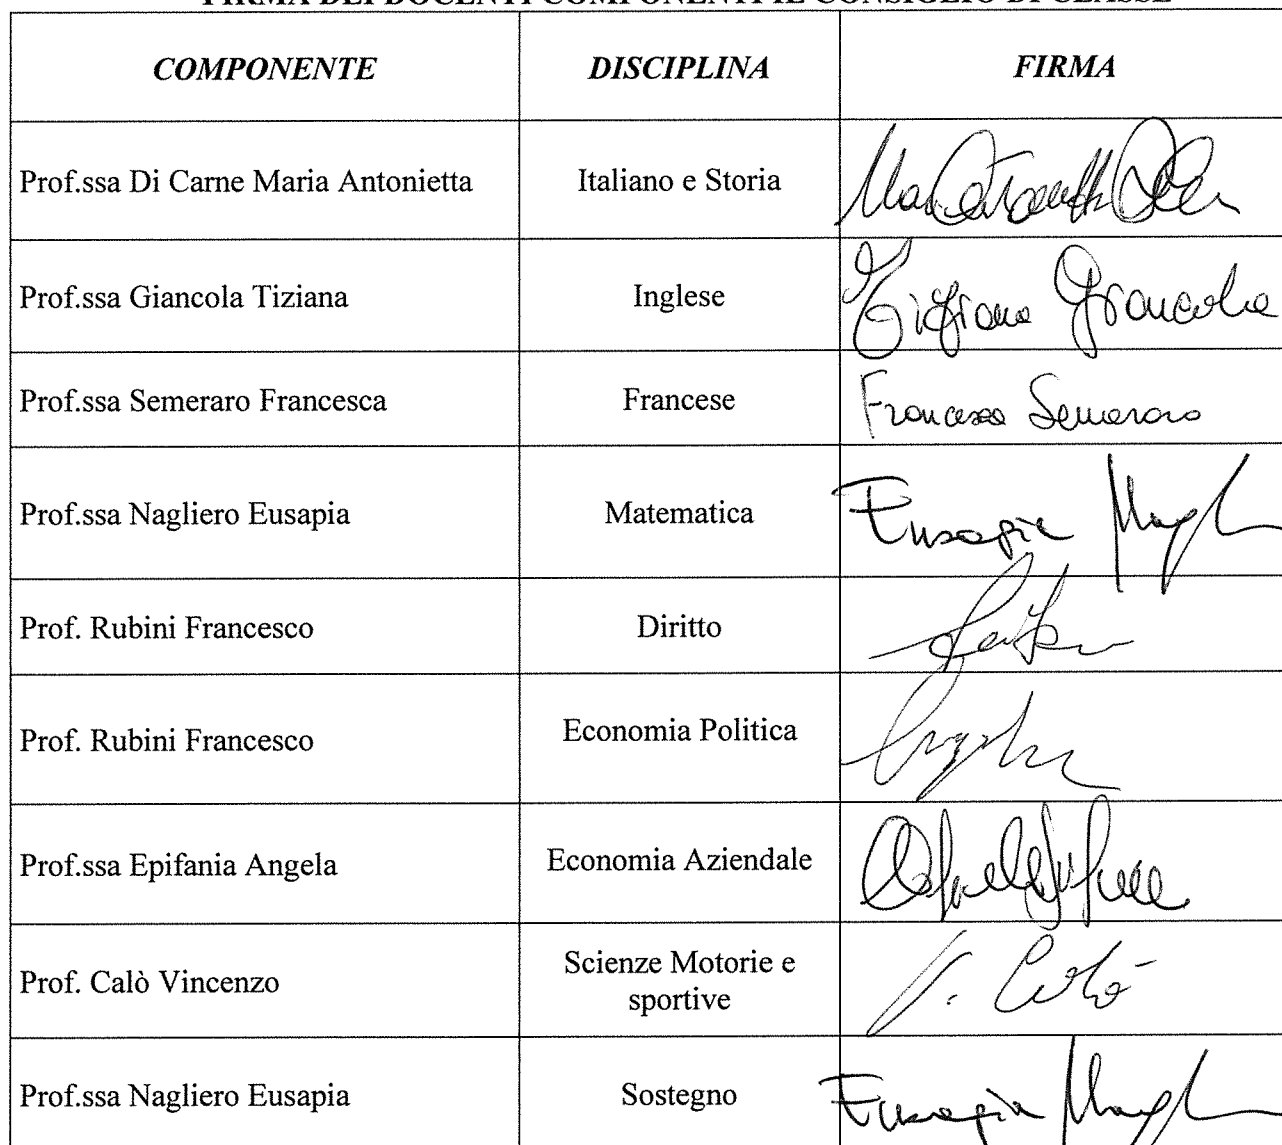 FIRMA DEI DOCENTI COMPONENTI IL CONSIGLIO DI CLASSE
COMPONENTE DISCIPLINA FIRMA
Prof.ssa Di Carne Maria Antonietta Italiano e Storia
Prof.ssa Giancola Tiziana Inglese Tiziana Giancola
Prof.ssa Semeraro Francesca Francese Francesca Semeraro
Prof.ssa Nagliero Eusapia Matematica Eusapia
Prof. Rubini Francesco Diritto
Prof. Rubini Francesco Economia Politica
Prof.ssa Epifania Angela Economia Aziendale
Prof. Calò Vincenzo Scienze Motorie e
sportive V. Calò
Prof.ssa Nagliero Eusapia Sostegno Eusapia